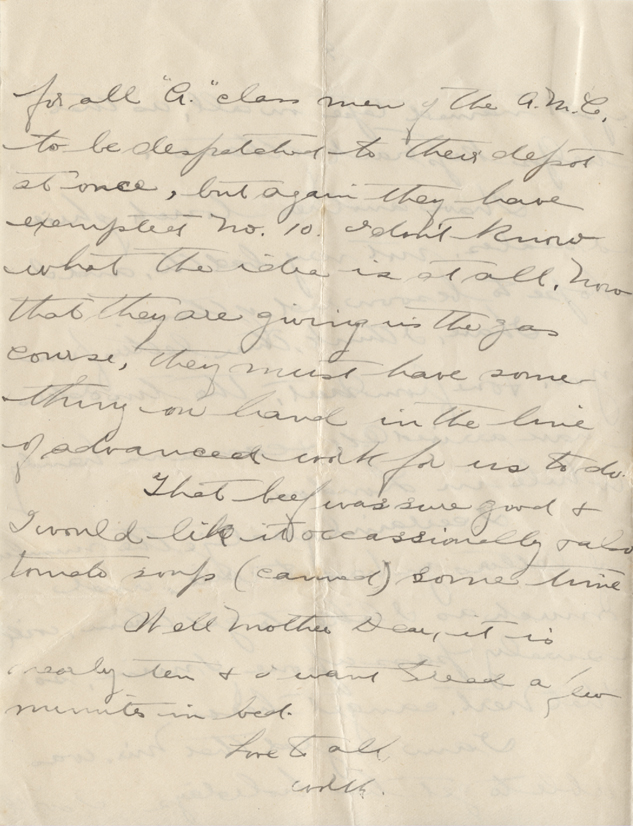 for all "A." class men of the A.M.C.
to be despatched to their depot
at once, but again they have
exempted No. 10. I don't know
what the idea is at all. Now
that they are giving us the gas
course, they must have some-
thing on hand in the line
of advanced work for us to do.
That beef was sure good &
I would like it occassionally & also
tomato soup (canned) some time
Well Mother Dear, it is
nearly ten & I want to read a few
minutes in bed.
Love to all,